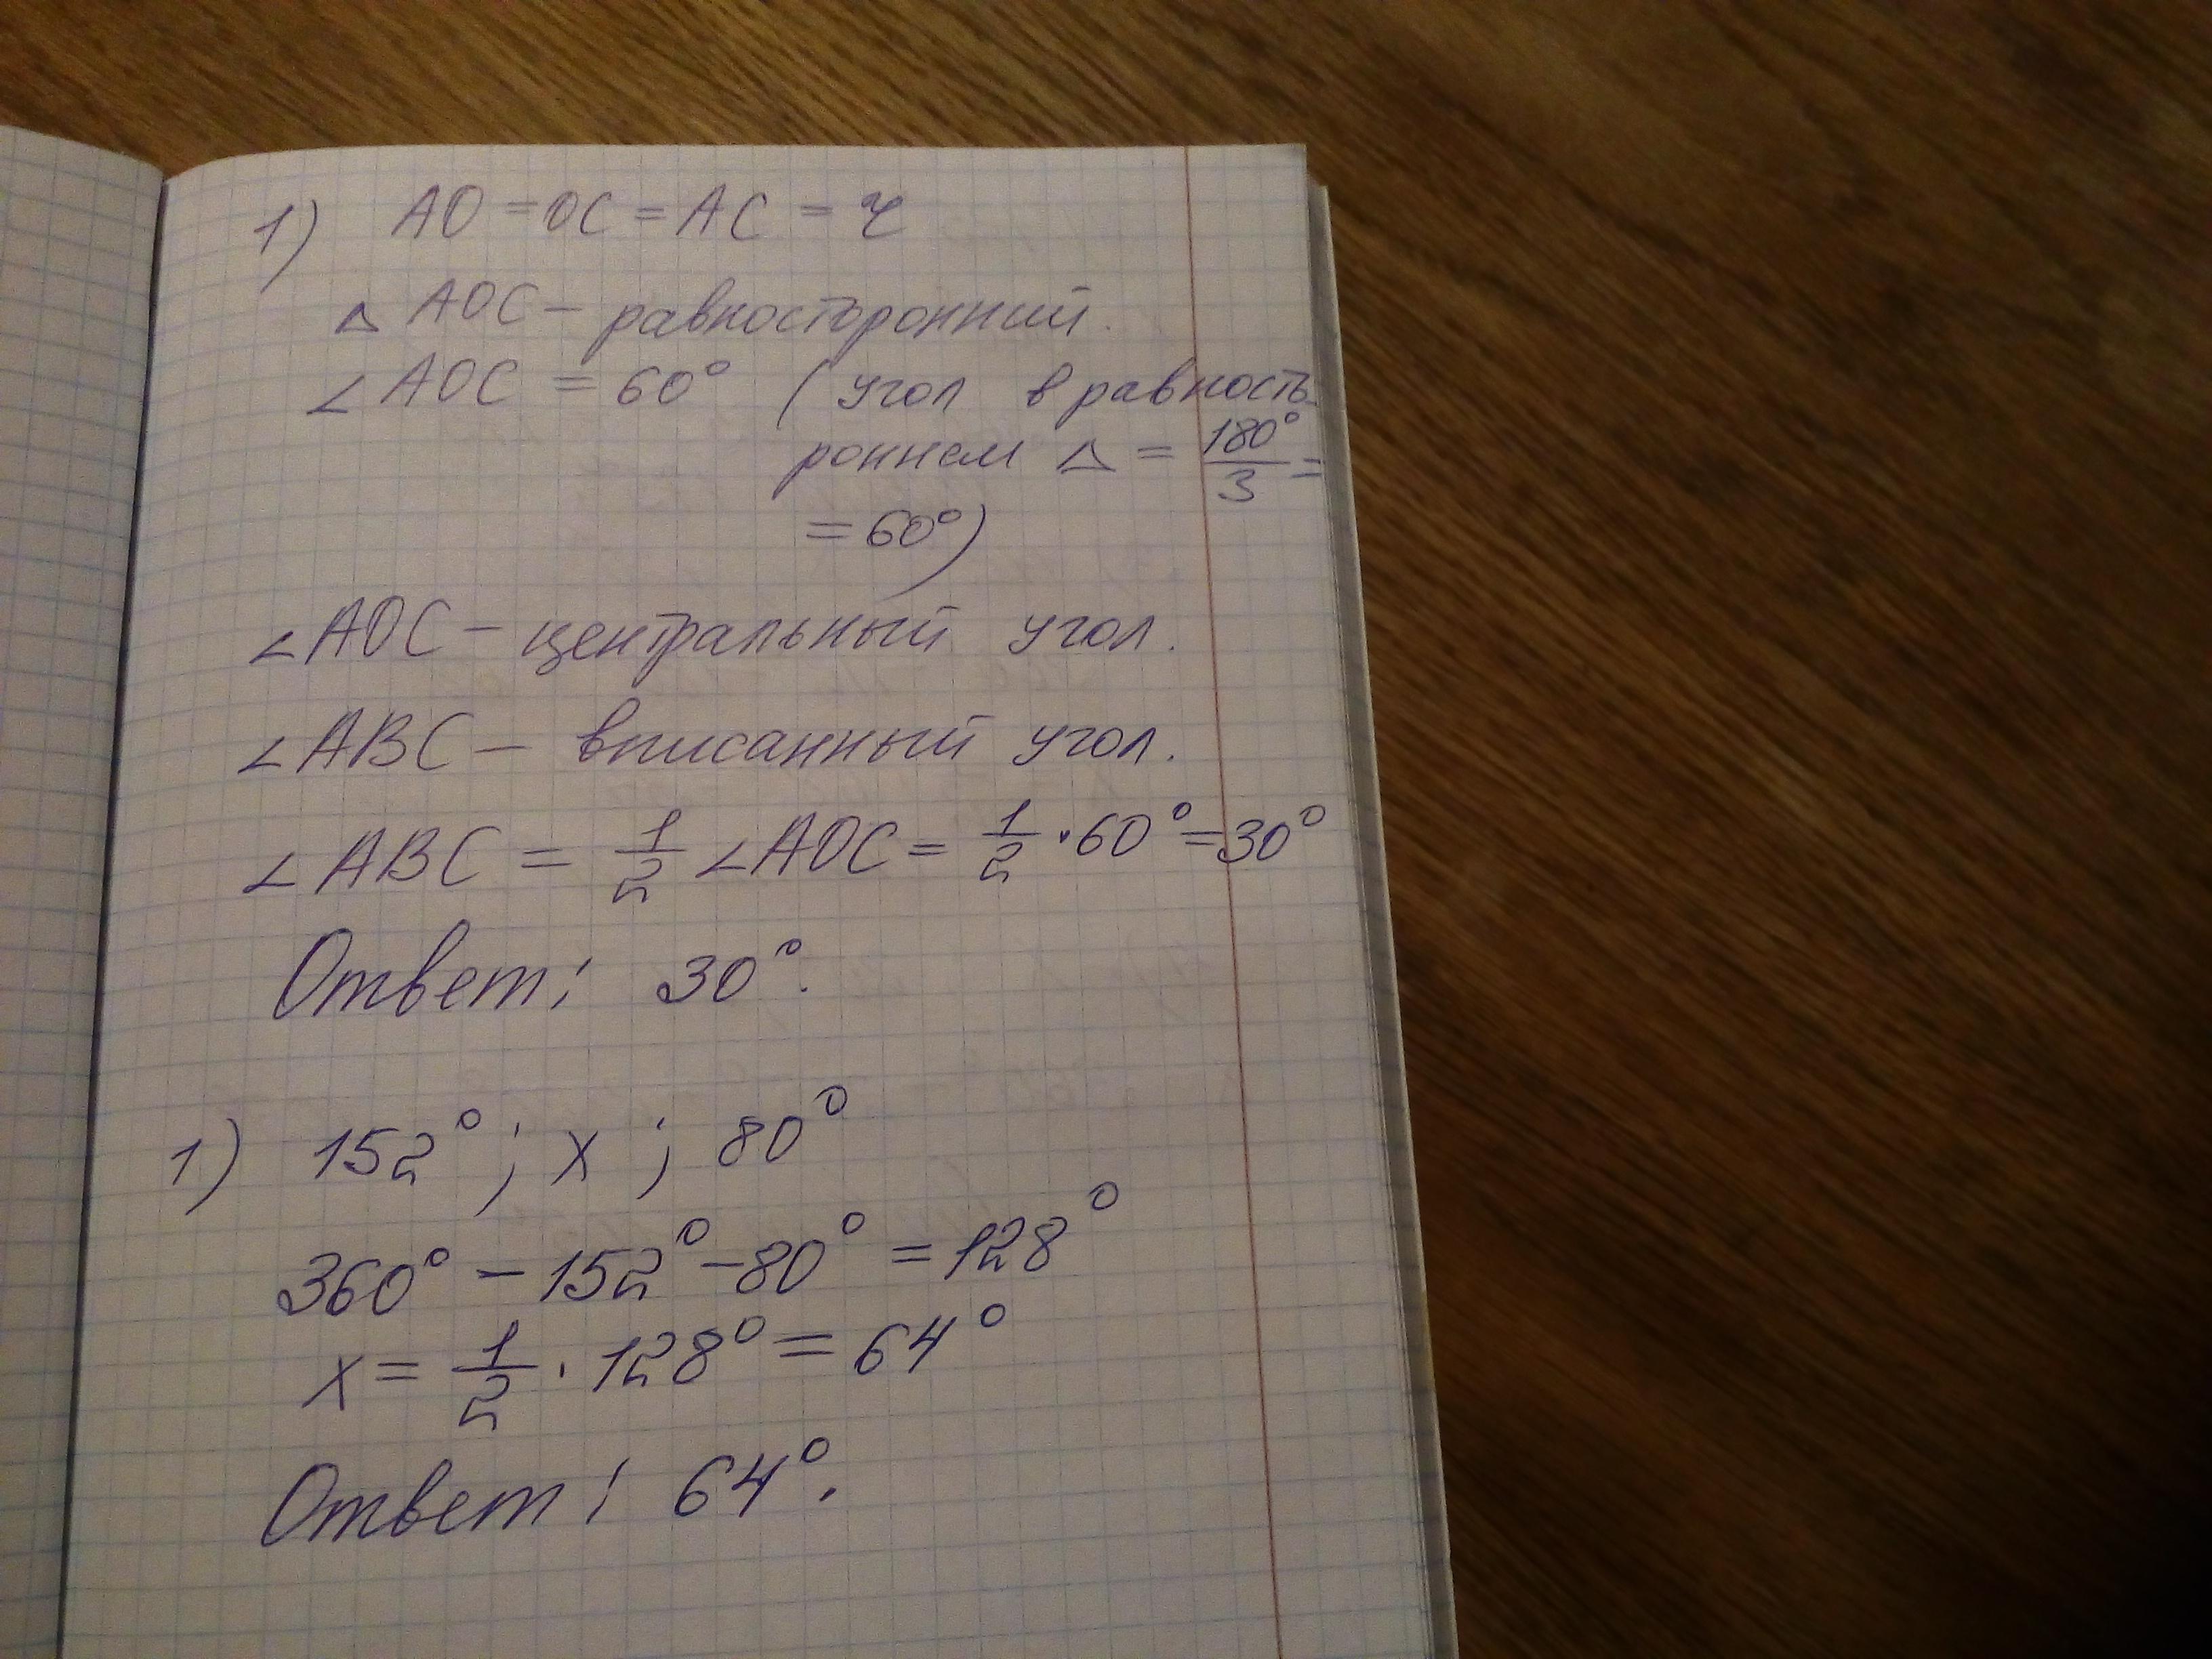 1) AO = OC = AC = r
△ AOC – равносторонний.
∠ AOC = 60° ( угол в равносто-
роннем △ = 180°/3 =
= 60°)
∠AOC – центральный угол.
∠ABC – вписанный угол.
∠ABC = 1/2 ∠AOC = 1/2 · 60° = 30°
Ответ: 30°.
1) 152° ; x ; 80°
360° – 152° – 80° = 128°
x = 1/2 · 128° = 64°
Ответ: 64°.